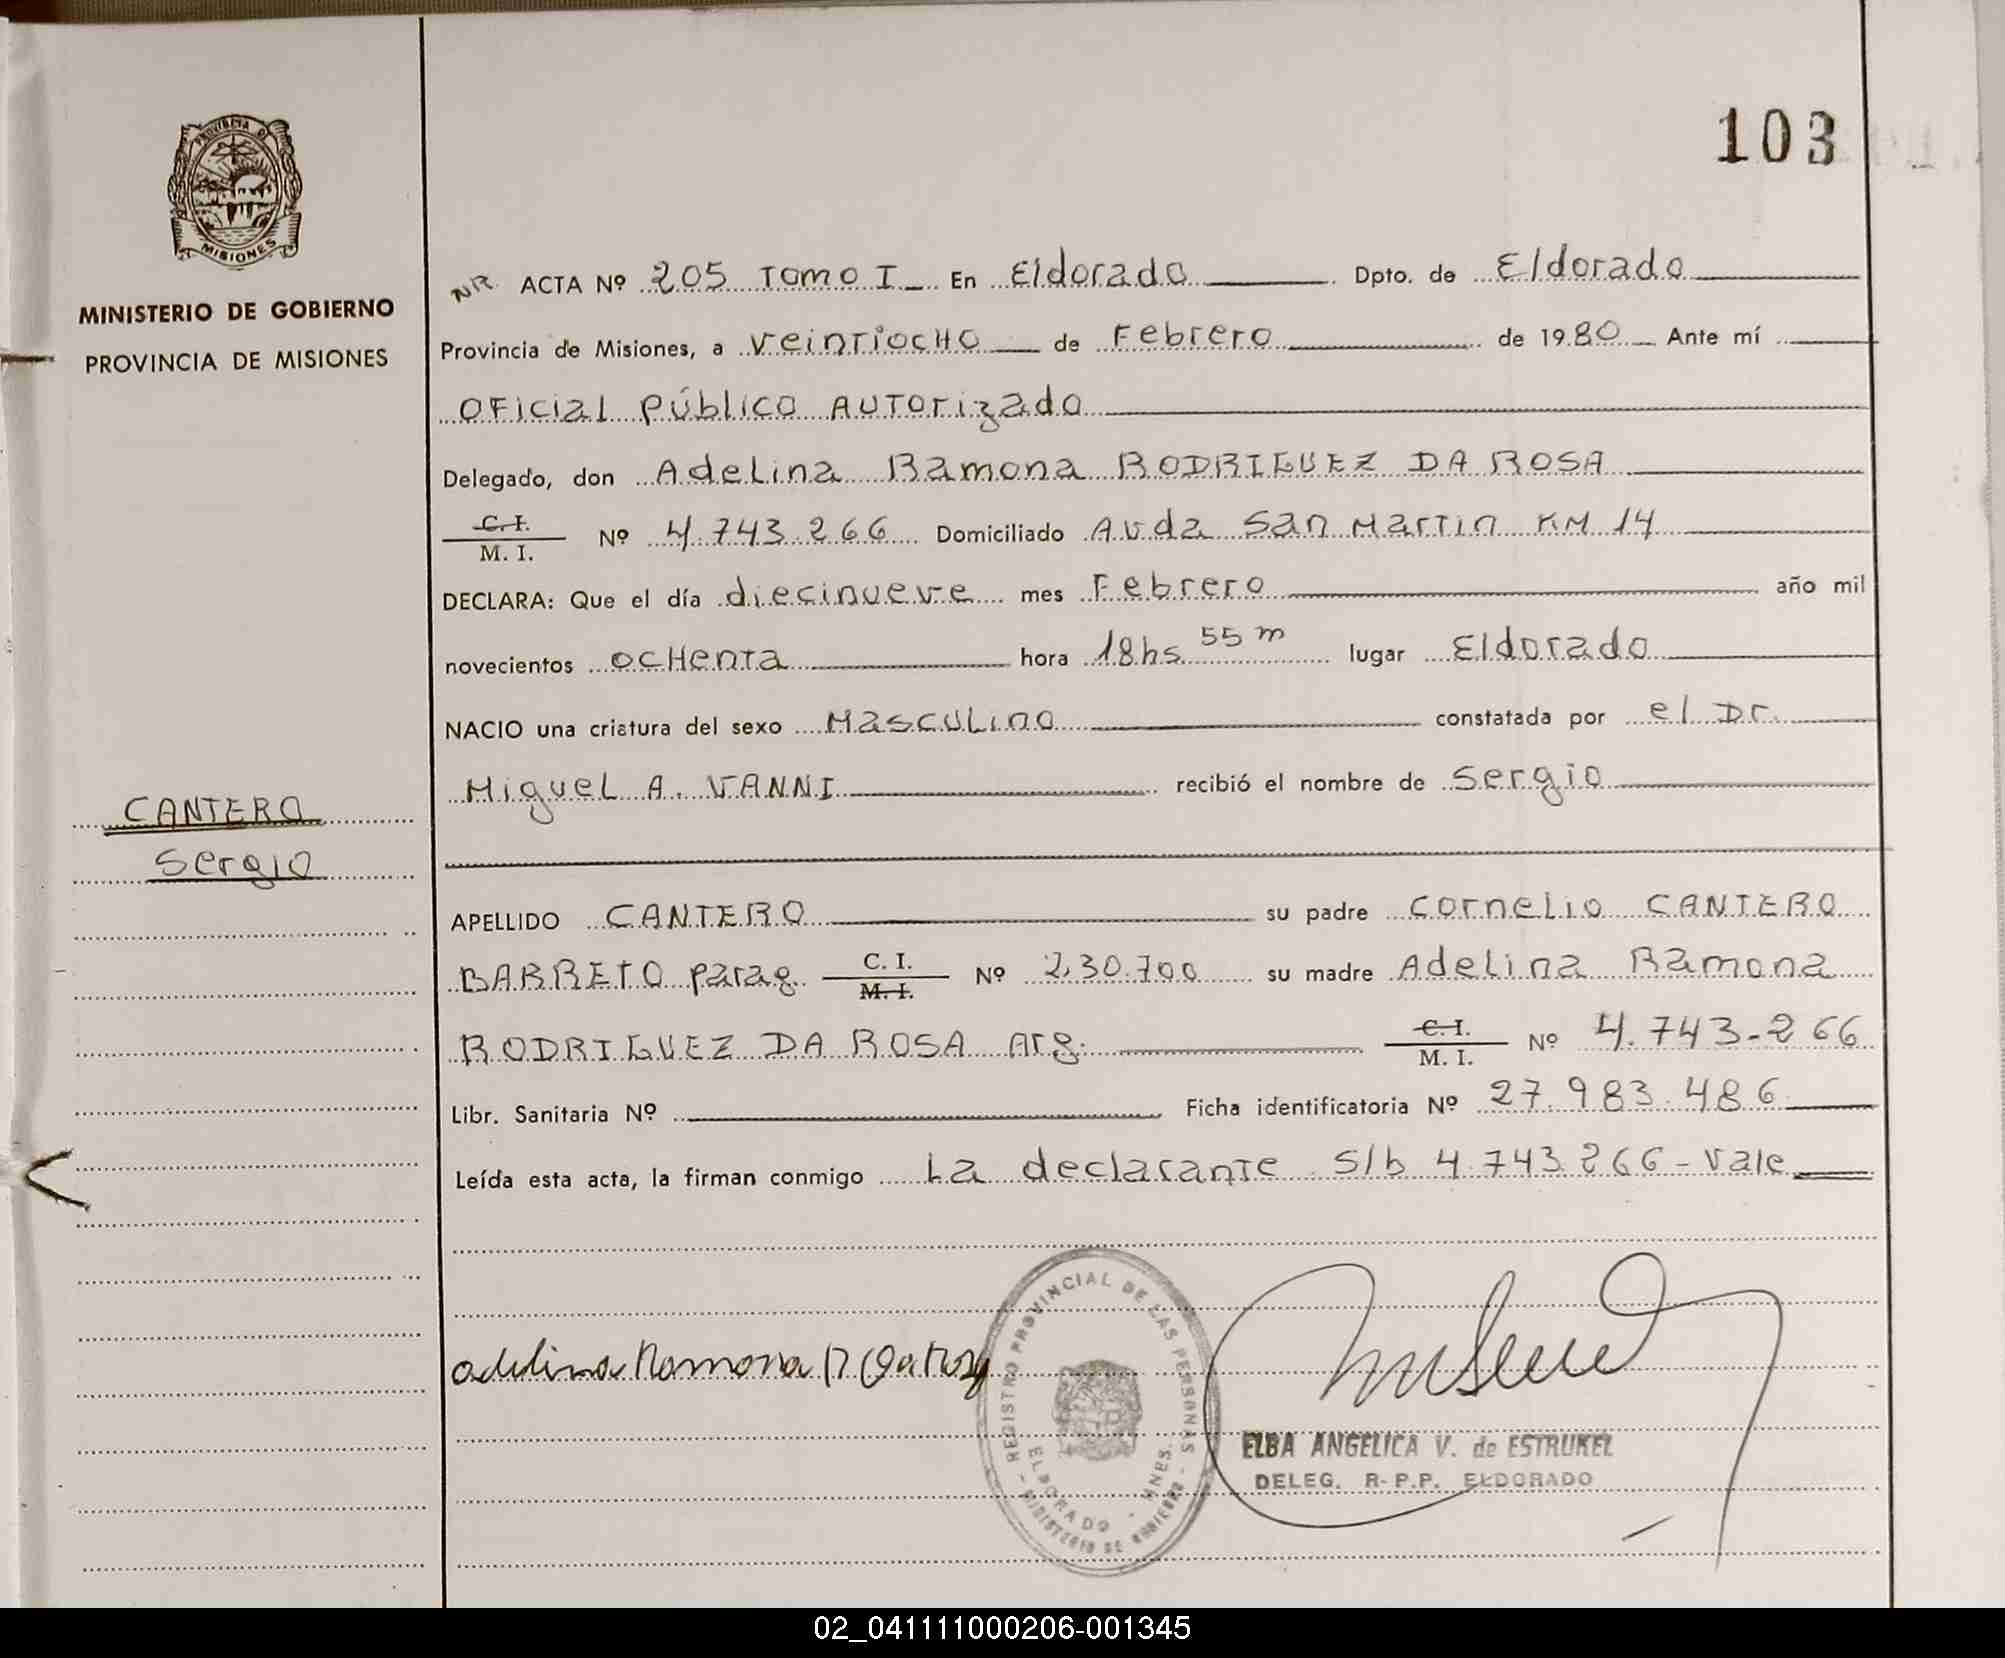 103
PROVINCIA DE
MISIONES
MINISTERIO DE GOBIERNO
PROVINCIA DE MISIONES
NR. ACTA Nº 205 Tomo I En Eldorado Dpto. de Eldorado
Provincia de Misiones, a veintiocho de Febrero de 1980 Ante mí
Oficial Público Autorizado
Delegado, don Adelina Ramona RODRIGUEZ DA ROSA
C. I.
M. I. Nº 4.743.266 Domiciliado Avda San Martin KM 14
DECLARA: Que el día diecinueve mes Febrero año mil
novecientos ochenta hora 18hs 55m lugar Eldorado
NACIO una criatura del sexo Masculino constatada por el Dr.
Miguel A. VANNI recibió el nombre de Sergio
CANTERO
Sergio
APELLIDO CANTERO su padre Cornelio CANTERO
BARRETO parag. C. I.
M. I. Nº 230.700 su madre Adelina Ramona
RODRIGUEZ DA ROSA Arg. C. I.
M. I. Nº 4.743-266
Libr. Sanitaria Nº Ficha identificatoria Nº 27.983.486
Leída esta acta, la firman conmigo La declarante S/b 4.743.266 - Vale
Adelina Ramona R Da Rosa
REGISTRO PROVINCIAL DE LAS PERSONAS
ELDORADO - MNES.
MINISTERIO DE GOBIERNO
ELBA ANGELICA V. de ESTRUKEL
DELEG. R-P.P. ELDORADO
02_041111000206-001345